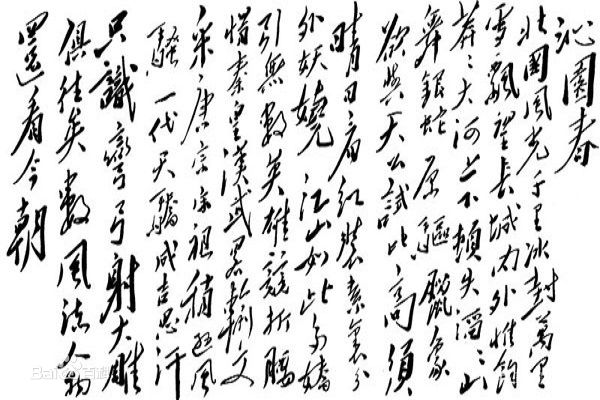 沁園春
北國風光千里冰封萬里
雪飄望長城内外惟餘
莽々大河上下頓失滔々山
舞銀蛇原驅臘象
欲與天公試比高須
晴日看紅裝素裹分
外妖嬈江山如此多嬌
引無數英雄競折腰
惜秦皇漢武略輸文
采唐宗宋祖稍遜風
騷一代天驕成吉思汗
只識彎弓射大雕
俱往矣數風流人物
還看今朝
Baidu百科